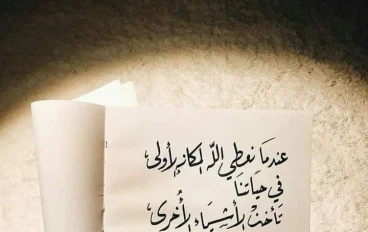 عندما نعطي الله المكانة الأولى
في حياتنا
تأخذ الأشياء الأخرى